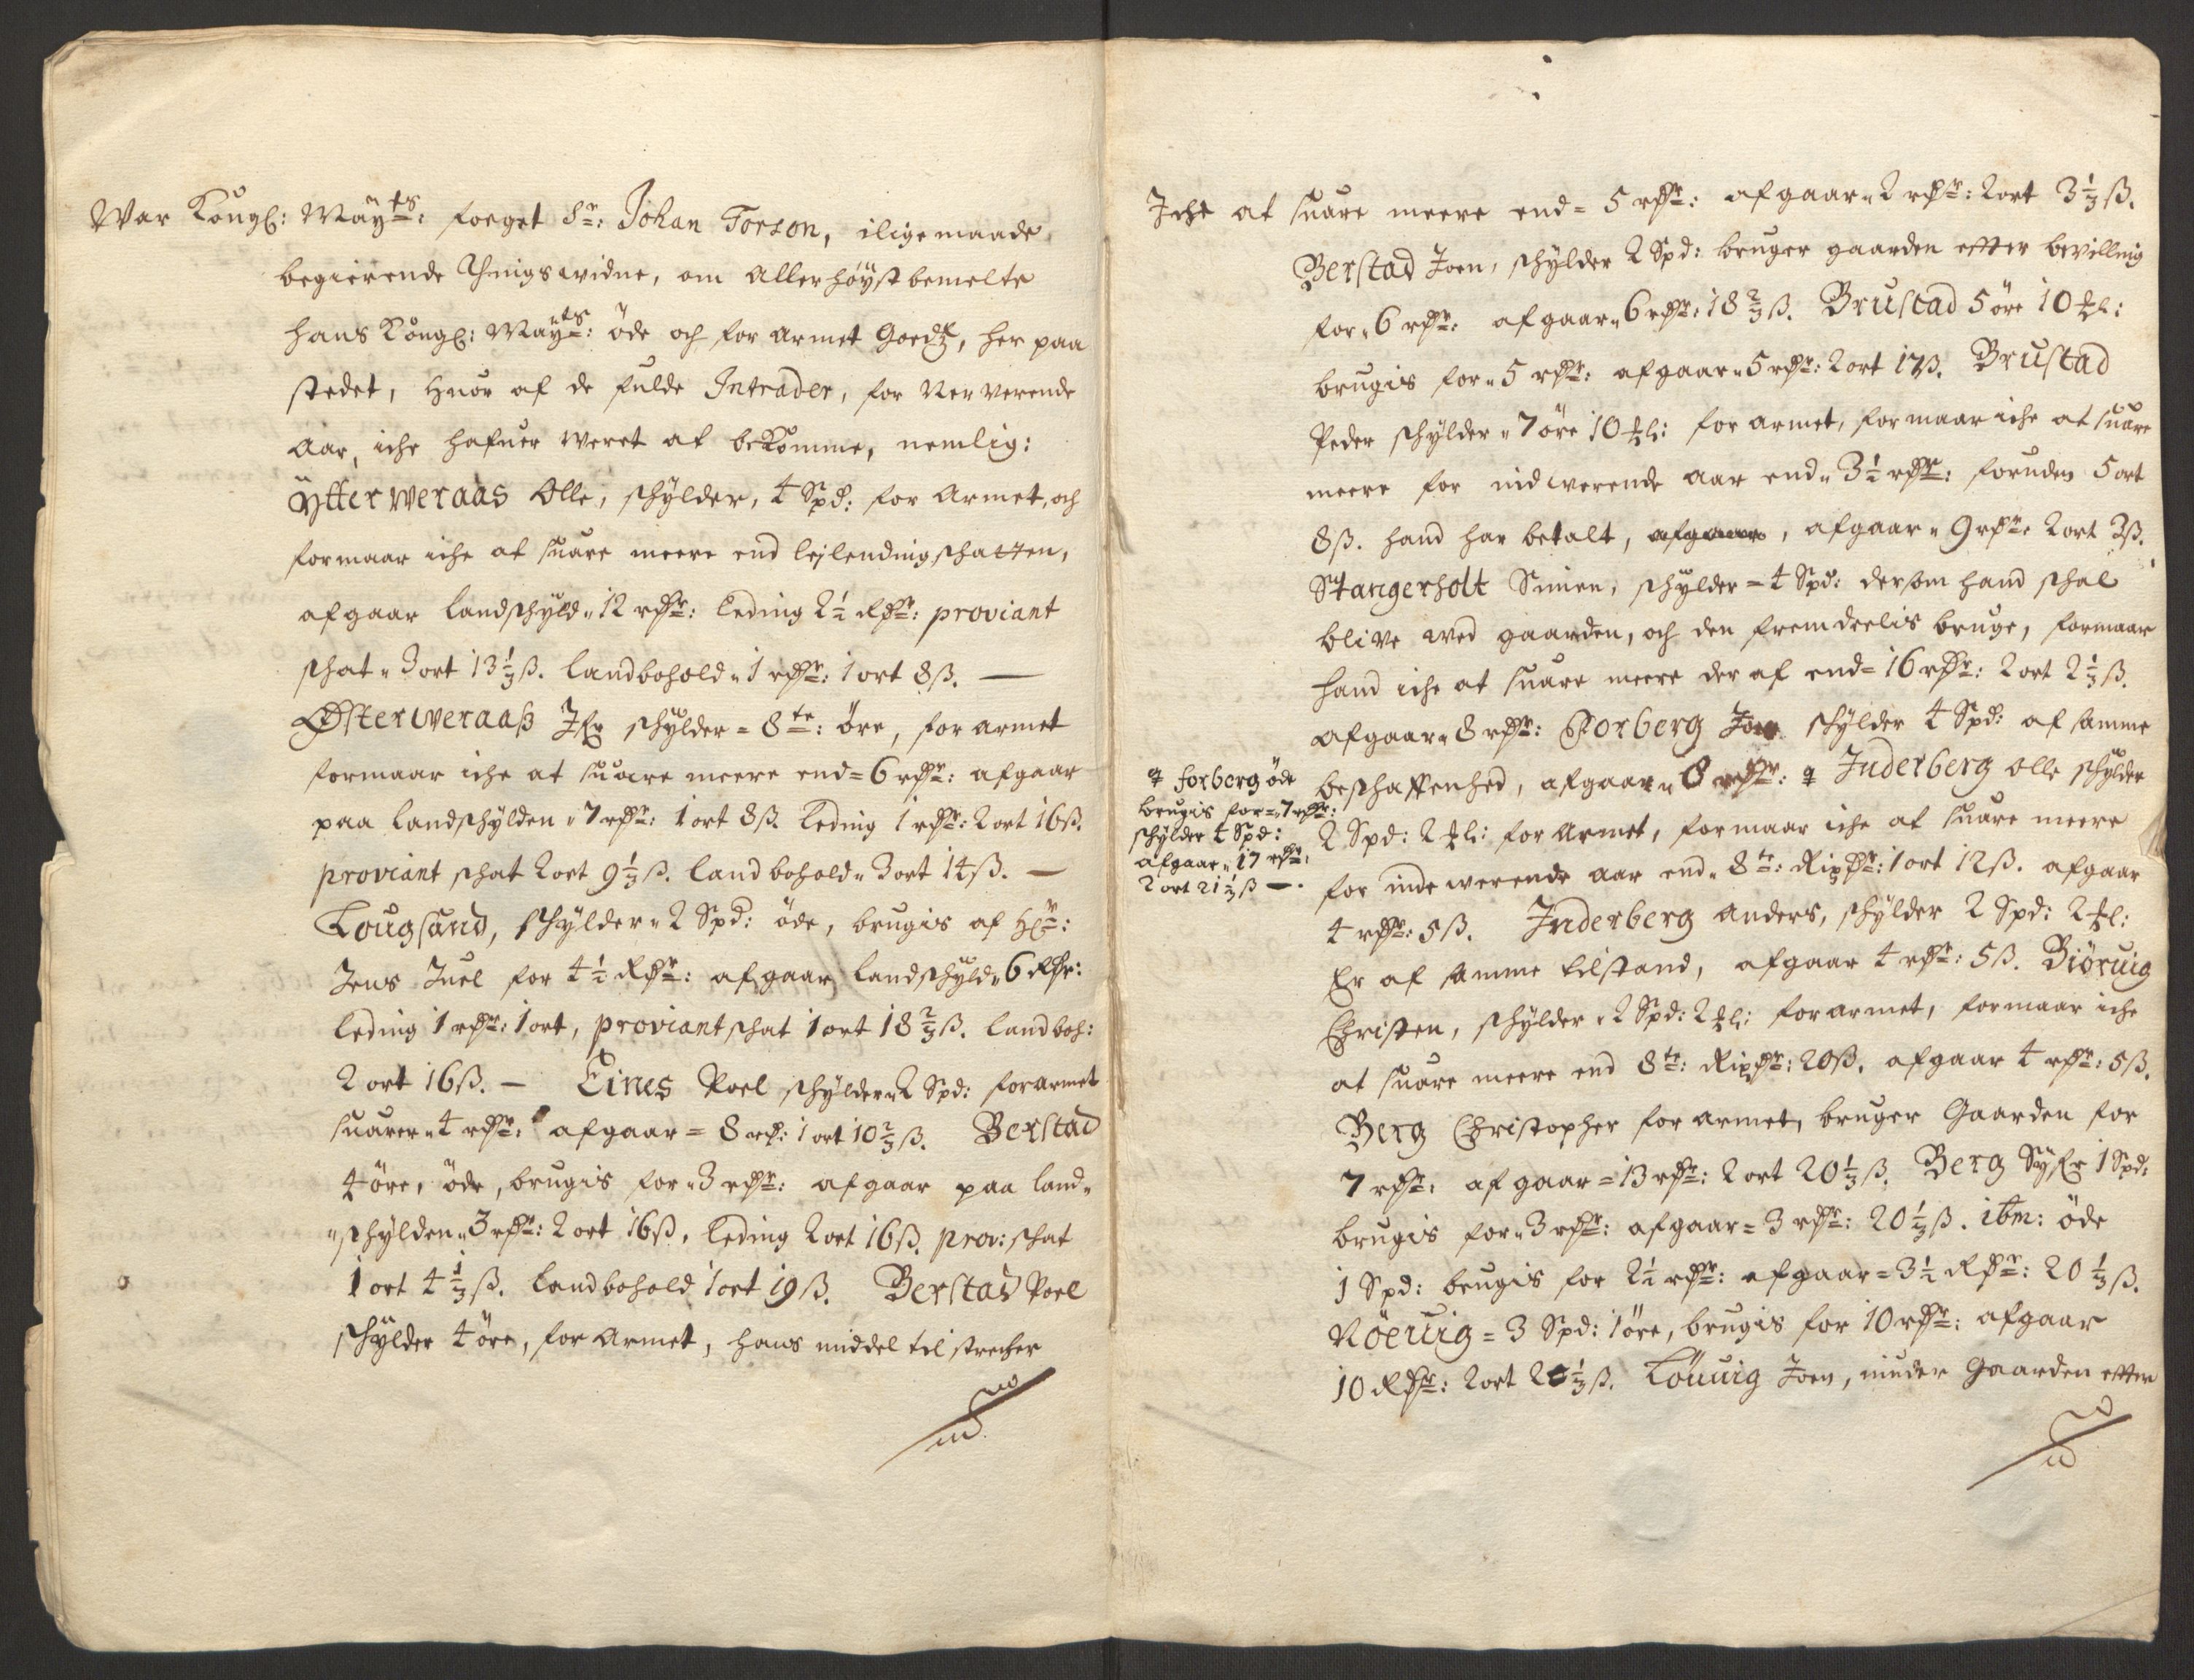 War Kongl: Mayts: foeget Sr: Johan Torson, iligemaade
begierende Thingswidne, om Allerhöystbemelte
hans Kongl: Mayts: öde och for armet Goedtz, her paa
stedet, huor af de fulde Intrader, for Nerverende
Aar, iche hafuer weret at bekomme, nemlig:
Ytterweraas Olle, schylder, 4 Spd: for Armet, och
formaar iche at suare meere end leilending schatten,
afgaar landschyld 12 rdr: leding 2½ Rdr: proviant
schat 3 ort 13⅓ ß. landbohold 1 rdr: 1 ort 8 ß. —
Østerweraaß schylder = 8te: öre, for armet
formaar iche at suare meere end = 6 rdr: afgaar
paa landschylden 7 rdr: 1 ort 8 ß. leding 1 rdr: 2 ort 16 ß.
proviant schat 2 ort 9⅓ ß. landbohold 3 ort 14 ß. —
Lougsand, schylder 2 Spd: öde, brugis af Hr:
Jens Juel for 4½ Rdr: afgaar landschyld 6 Rdr:
leding 1 rdr: 1 ort, proviant schat 1 ort 18⅔ ß. landboh:
2 ort 16 ß. — Eines Poel schylder 2 Spd: forarmet
suarer 4 rdr: afgaar = 8 rd: 1 ort 10⅔ ß. Berstad
4 öre, öde, brugis for 3 rdr: afgaar paa land-
schylden 3 rdr: 2 ort 16 ß, leding 2 ort 16 ß. prov: schat
1 ort 4⅓ ß. landbohold 1 ort 19 ß. Berstad Poel
schylder 4 öre, for Armet, hans middel tilstrecher
Iche at suare meere end = 5 rdr: afgaar 2 rdr: 2 ort 3⅓ ß.
Berstad Joen, schylder 2 Spd: bruger gaarden efter bevillning
for 6 rdr: afgaar 6 rdr: 18⅔ ß. Brustad 5 öre 10 :
brugis for 5 rdr: afgaar 5 rdr: 2 ort 17 ß. Brustad
Peder schylder 7 öre 10 : for armet, formaar iche at suare
meere for indwerende aar end 3½ rdr: foruden 5 ort
8 ß. hand har betalt, afgaar, afgaar 9 rdr: 2 ort 3 ß.
Stangerholt Simen, schylder = 4 Spd: dersom hand schal
blive wed gaarden, och den fremdeelis bruge, formaar
hand iche at suare meere der af end = 16 rdr: 2 ort 2⅓ ß.
afgaar 8 rdr: Forberg Joen schylder 4 Spd: af samme
beschaffenhed, afgaar 8 rdr: Inderberg olle schylder
forberg öde
brugis for = 7 rdr:
schylder 4 Spd:
afgaar 17 rdr:
2 ort 21⅓ ß —.
2 Spd: 2 : for Armet, formaar iche at suare meere
for indewerende aar end 8te: Rixdr: 1 ort 12 ß. afgaar
4 rdr: 5 ß. Inderberg Anders, schylder 2 Spd: 2 :
Er af samme tilstand, afgaar 4 rdr: 5 ß. Biöruig
Christen, schylder 2 Spd: 2 : forarmet, formaar iche
at suare meere end 8te: Rixdr: 20 ß. afgaar 4 rdr: 5 ß.
Berg Christopher for armet, bruger Gaarden for
7 rdr: afgaar = 13 rdr: 2 ort 20⅓ ß. Berg 1 Spd:
brugis for 3 rdr: afgaar = 3 rdr: 20⅓ ß. ibm: öde
1 Spd: brugis for 2½ rdr: afgaar = 3½ Rdr: 20⅓ ß.
Röeuig = 3 Spd: 1 öre, brugis for 10 rdr: afgaar
10 Rdr: 2 ort ß. Löuuig Joen, niuder Gaarden efter